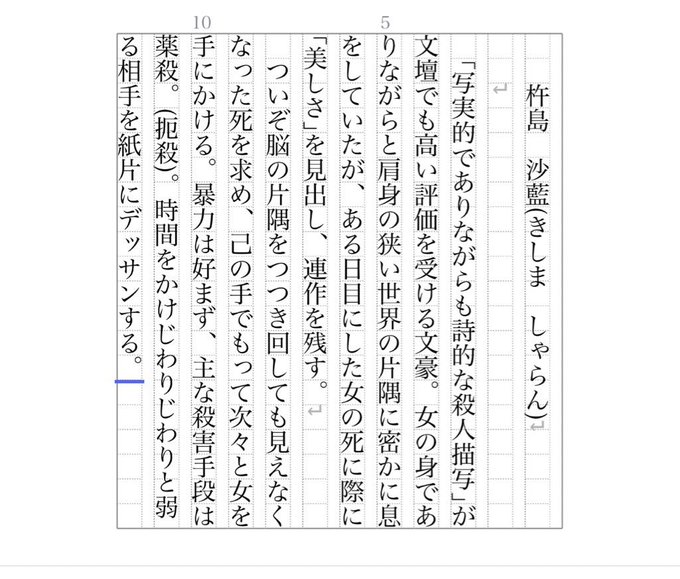 5
10
杵島　沙藍(きしま　しゃらん)↵
↵
「写実的でありながらも詩的な殺人描写」が
文壇でも高い評価を受ける文豪。女の身であ
りながらと肩身の狭い世界の片隅に密かに息
をしていたが、ある日目にした女の死に際に
「美しさ」を見出し、連作を残す。↵
　ついぞ脳の片隅をつつき回しても見えなく
なった死を求め、己の手でもって次々と女を
手にかける。暴力は好まず、主な殺害手段は
薬殺。(扼殺)。時間をかけじわりじわりと弱
る相手を紙片にデッサンする。